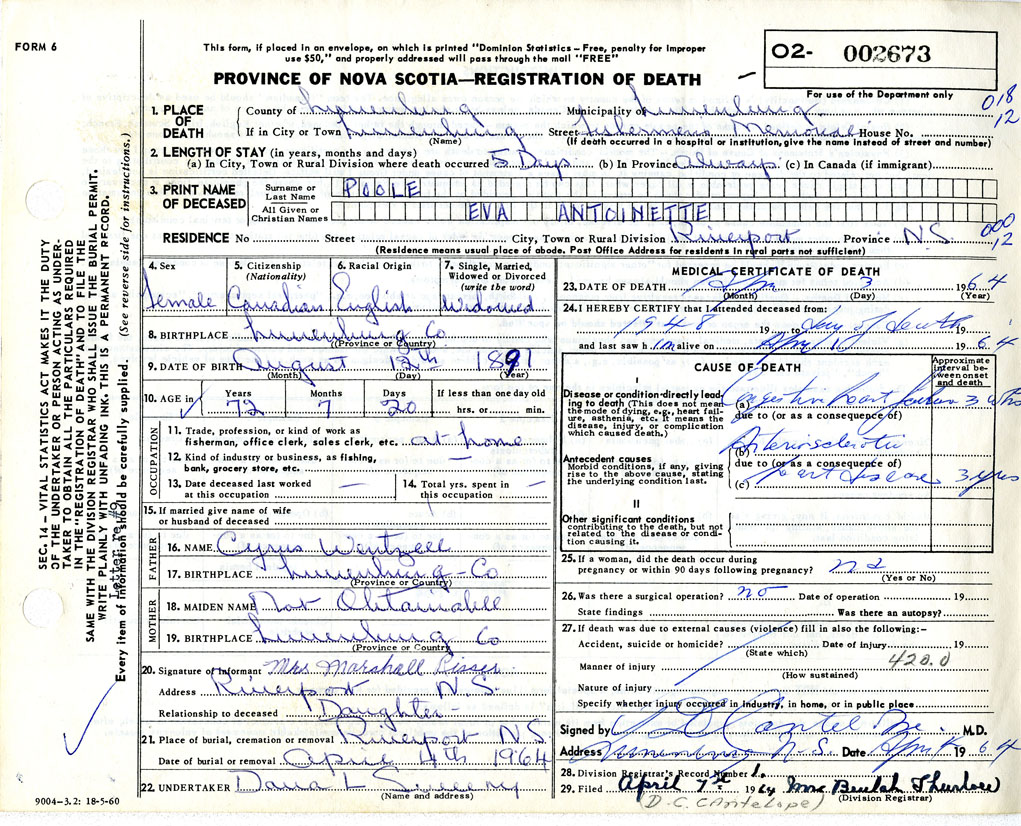 FORM 6
This form, if placed in an envelope, on which is printed "Dominion Statistics – Free, penalty for improper
use $50," and properly addressed will pass through the mail "FREE"
PROVINCE OF NOVA SCOTIA—REGISTRATION OF DEATH
O2- 002673
For use of the Department only
018
12
1. PLACE OF DEATH
County of Lunenburg Municipality of Lunenburg
If in City or Town Lunenburg Street Fishermens Memorial House No.
(Name) (If death occurred in a hospital or institution, give the name instead of street and number)
2. LENGTH OF STAY (in years, months and days)
(a) In City, Town or Rural Division where death occurred 5 Days (b) In Province Always (c) In Canada (if immigrant)
3. PRINT NAME OF DECEASED
Surname or Last Name POOLE
All Given or Christian Names EVA ANTOINETTE
000
12
RESIDENCE No Street City, Town or Rural Division Riverport Province N.S.
(Residence means usual place of abode. Post Office Address for residents in rural parts not sufficient)
4. Sex female
5. Citizenship (Nationality) Canadian
6. Racial Origin English
7. Single, Married, Widowed or Divorced (write the word) Widowed
8. BIRTHPLACE Lunenburg Co
(Province or Country)
9. DATE OF BIRTH August 12th 1891
(Month) (Day) (Year)
10. AGE in Years 72 Months 7 Days 20 If less than one day old hrs. or min.
OCCUPATION
11. Trade, profession, or kind of work as
fisherman, office clerk, sales clerk, etc. at home
12. Kind of industry or business, as fishing,
bank, grocery store, etc. —
13. Date deceased last worked
at this occupation —
14. Total yrs. spent in
this occupation —
15. If married give name of wife
or husband of deceased
FATHER
16. NAME Cyrus Wentzell
17. BIRTHPLACE Lunenburg Co
(Province or Country)
MOTHER
18. MAIDEN NAME Not Obtainable
19. BIRTHPLACE Lunenburg Co
(Province or Country)
20. Signature of informant Mrs Marshall Risser
Address Riverport N.S.
Relationship to deceased Daughter
21. Place of burial, cremation or removal Riverport N.S.
Date of burial or removal April 4th 1964
22. UNDERTAKER Dana L Sweeny
(Name and address)
9004-3.2: 18-5-60
MEDICAL CERTIFICATE OF DEATH
23. DATE OF DEATH 3 1964
(Month) (Day) (Year)
24. I HEREBY CERTIFY that I attended deceased from:
1948 19 to day of death 19
and last saw him alive on 1 1964
CAUSE OF DEATH
Approximate interval between onset and death
I
Disease or condition directly leading to death (This does not mean the mode of dying, e.g., heart failure, asthenia, etc. It means the disease, injury, or complication which caused death.)
(a) Congestive Heart failure 3 wks
due to (or as a consequence of)
Antecedent causes
Morbid conditions, if any, giving rise to the above cause, stating the underlying condition last.
(b) Arteriosclerotic
due to (or as a consequence of)
(c) heart disease 3 yrs
II
Other significant conditions
contributing to the death, but not related to the disease or condition causing it.
25. If a woman, did the death occur during
pregnancy or within 90 days following pregnancy? no
(Yes or No)
26. Was there a surgical operation? no Date of operation 19
State findings Was there an autopsy?
27. If death was due to external causes (violence) fill in also the following:–
Accident, suicide or homicide? Date of injury 19
(State which) 420.0
Manner of injury
(How sustained)
Nature of injury
Specify whether injury occurred in Industry, in home, or in public place
Signed by M.D.
Address Lunenburg N.S. Date 1964
28. Division Registrar's Record Number 1.
29. Filed April 7st 1964 Mrs Beulah Thurlow
(D.C. Cantelope) (Division Registrar)
SEC. 14 – VITAL STATISTICS ACT MAKES IT THE DUTY
OF THE UNDERTAKER OR PERSON ACTING AS UNDER-
TAKER TO OBTAIN ALL THE PARTICULARS REQUIRED
IN THE "REGISTRATION OF DEATH" AND TO FILE THE
SAME WITH THE DIVISION REGISTRAR WHO SHALL ISSUE THE BURIAL PERMIT.
WRITE PLAINLY WITH UNFADING INK. THIS IS A PERMANENT RECORD.
Letter re #9
Every item of information should be carefully supplied. (See reverse side for instructions.)